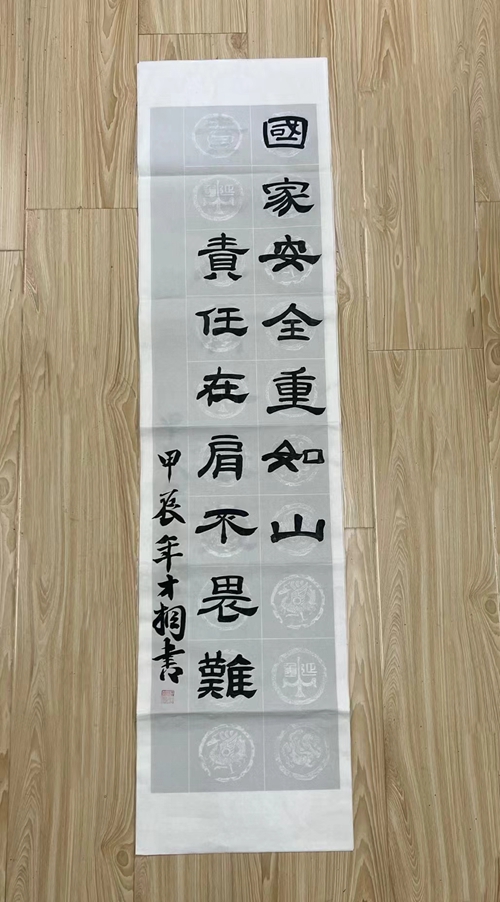 國家安全重如山
責任在肩不畏難
甲辰年才桐書